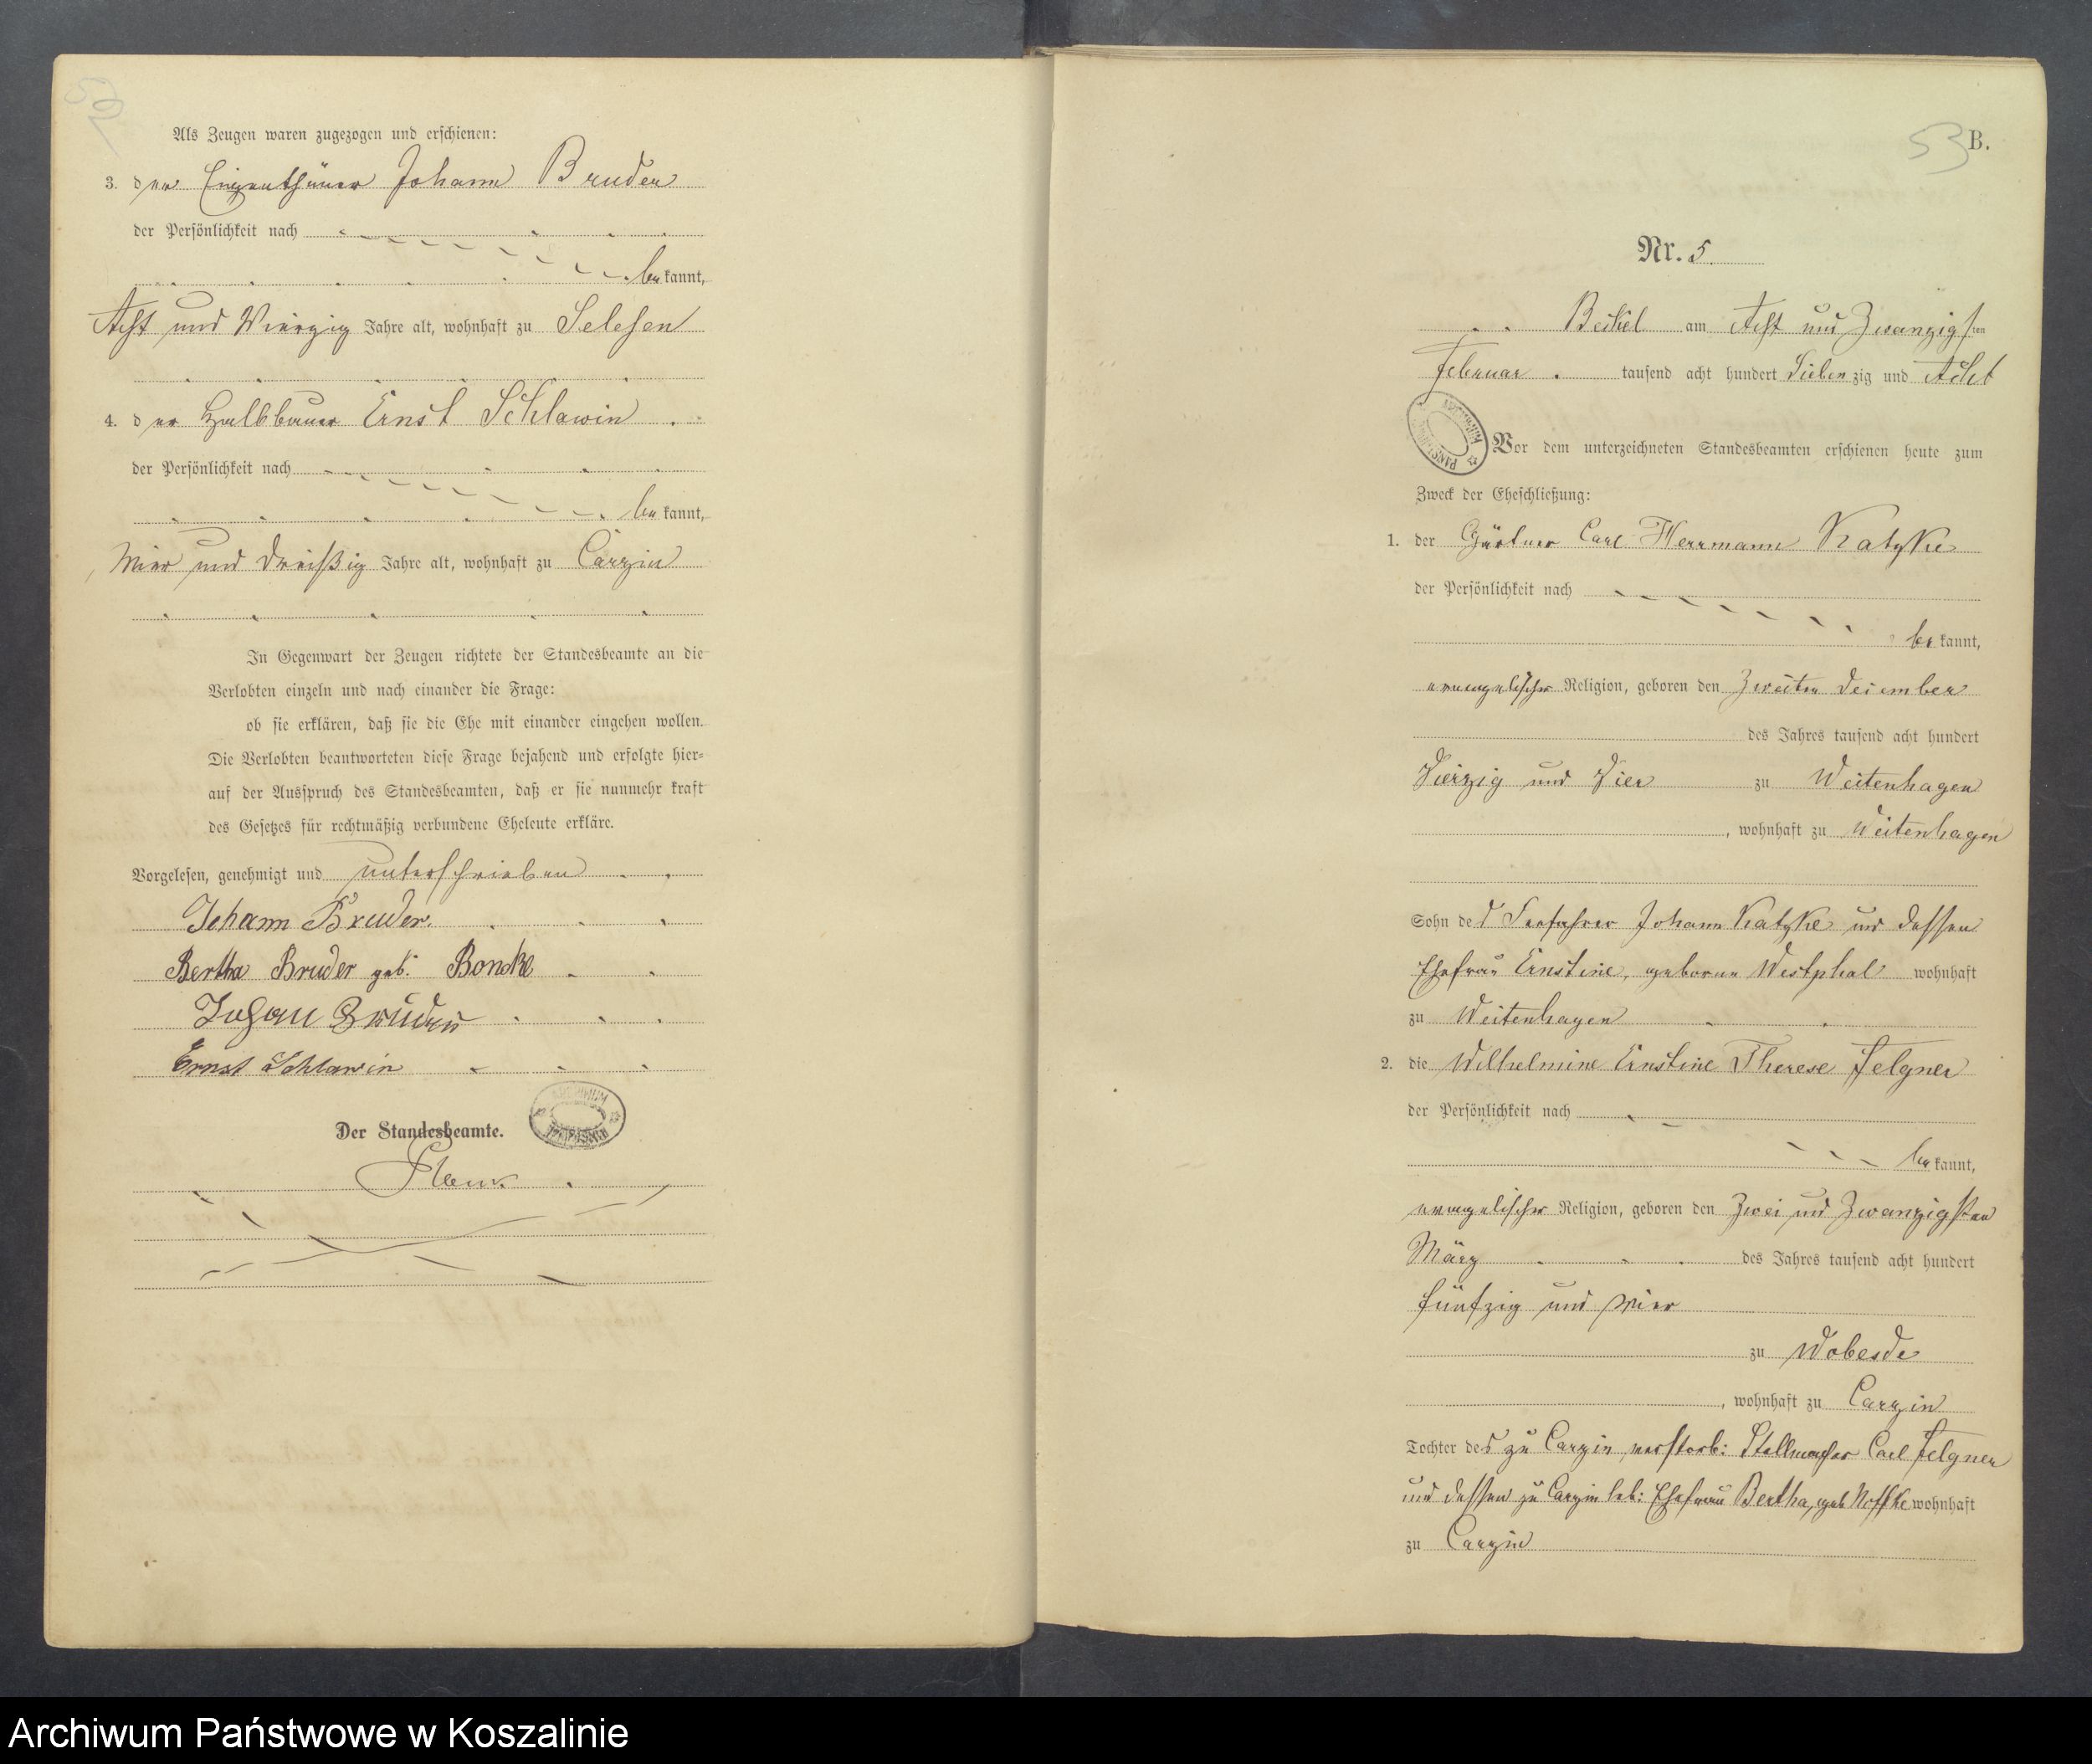 Als Zeugen waren zugezogen und erschienen:
3. der Eigenthümer Johann Bruder
der Persönlichkeit nach
bekannt,
Acht und Vierzig Jahre alt, wohnhaft zu Selesen
4. der Halbbauer Ernst Schlawin
der Persönlichkeit nach
bekannt,
Vier und dreißig Jahre alt, wohnhaft zu Carzin
In Gegenwart der Zeugen richtete der Standesbeamte an die
Verlobten einzeln und nach einander die Frage:
ob sie erklären, daß sie die Ehe mit einander eingehen wollen.
Die Verlobten beantworteten diese Frage bejahend und erfolgte hier-
auf der Ausspruch des Standesbeamten, daß er sie nunmehr kraft
des Gesetzes für rechtmäßig verbundene Eheleute erkläre.
Vorgelesen, genehmigt und unterschrieben
Johann Bruder.
Bertha Bruder geb. Boncke
Johan Bruder
Ernst Schlawin
Der Standesbeamte.
53 B.
Nr. 5.
Beckel am Acht und Zwanzigsten
Februar tausend acht hundert Siebenzig und Acht
Vor dem unterzeichneten Standesbeamten erschienen heute zum
Zweck der Eheschließung:
1. der Gärtner Carl Herrmann Katzke
der Persönlichkeit nach
bekannt,
evangelischer Religion, geboren den Zweiten December
des Jahres tausend acht hundert
Vierzig und Vier zu Weitenhagen
, wohnhaft zu Weitenhagen
Sohn des Seefahrer Johann Katzke und dessen
Ehefrau Ernstine, geborene Westphal wohnhaft
zu Weitenhagen
2. die Wilhelmine Ernstine Therese Felgner
der Persönlichkeit nach
bekannt,
evangelischer Religion, geboren den Zwei und Zwanzigsten
März des Jahres tausend acht hundert
fünfzig und vier
zu Wobesde
, wohnhaft zu Carzin
Tochter des zu Carzin verstorb: Stellmacher Carl Felgner
und dessen zu Carzin leb: Ehefrau Bertha, geb Noffke wohnhaft
zu Carzin
Archiwum Państwowe w Koszalinie